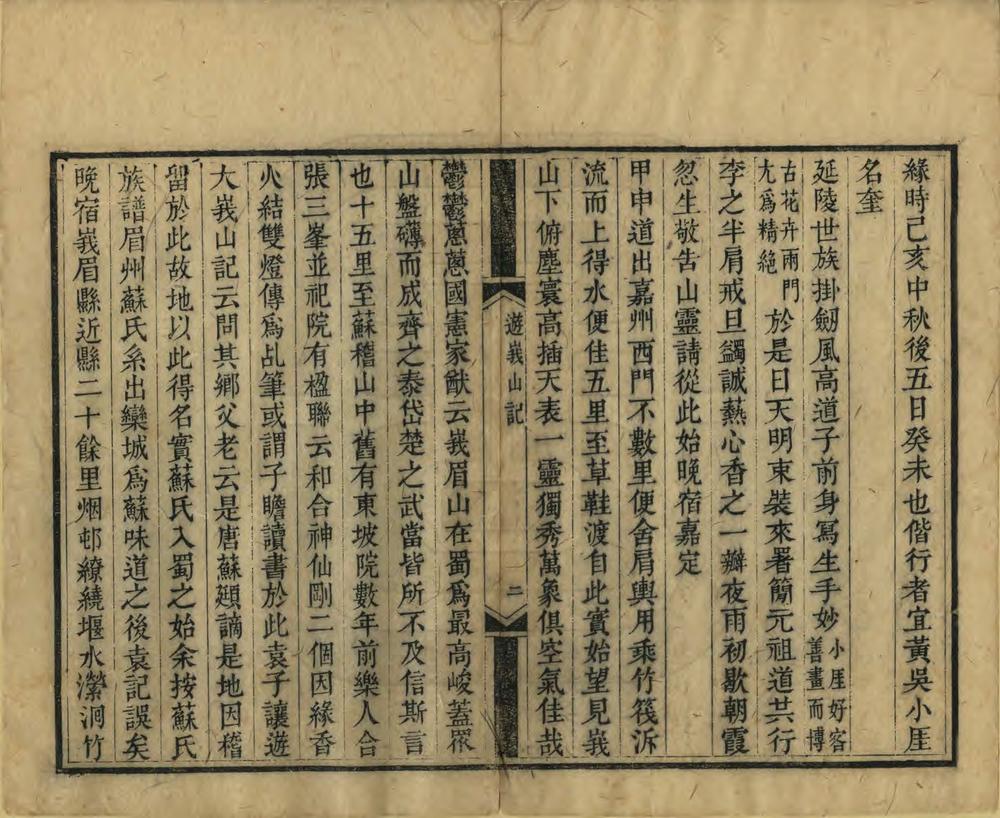 緣時己亥中秋後五日癸未也偕行者宜黃吳小厓
名奎
延陵世族掛劒風高道子前身寫生手妙小厓好客善畫而博
古花卉兩門尤爲精絕於是日天明束裝來署簡元祖道共行
李之半肩戒旦蠲誠熱心香之一瓣夜雨初歇朝霞
忽生敬告山靈請從此始晚宿嘉定
甲申道出嘉州西門不數里便舍肩輿用乘竹筏泝
流而上得水便佳五里至草鞋渡自此實始望見峩
山下俯塵寰高插天表一靈獨秀萬象俱空氣佳哉
遊峩山記
二
鬱鬱蔥蔥國憲家猷云峩眉山在蜀爲最高峻蓋眾
山盤礴而成齊之泰岱楚之武當皆所不及信斯言
也十五里至蘇稽山中舊有東坡院數年前樂人合
張三峯並祀院有楹聯云和合神仙剛二個因緣香
火結雙燈傳爲乩筆或謂子瞻讀書於此袁子讓遊
大峩山記云問其鄉父老云是唐蘇頲謫是地因稽
留於此故地以此得名實蘇氏入蜀之始余按蘇氏
族譜眉州蘇氏系出欒城爲蘇味道之後袁記誤矣
晚宿峩眉縣近縣二十餘里烟邨繚繞堰水瀠洄竹